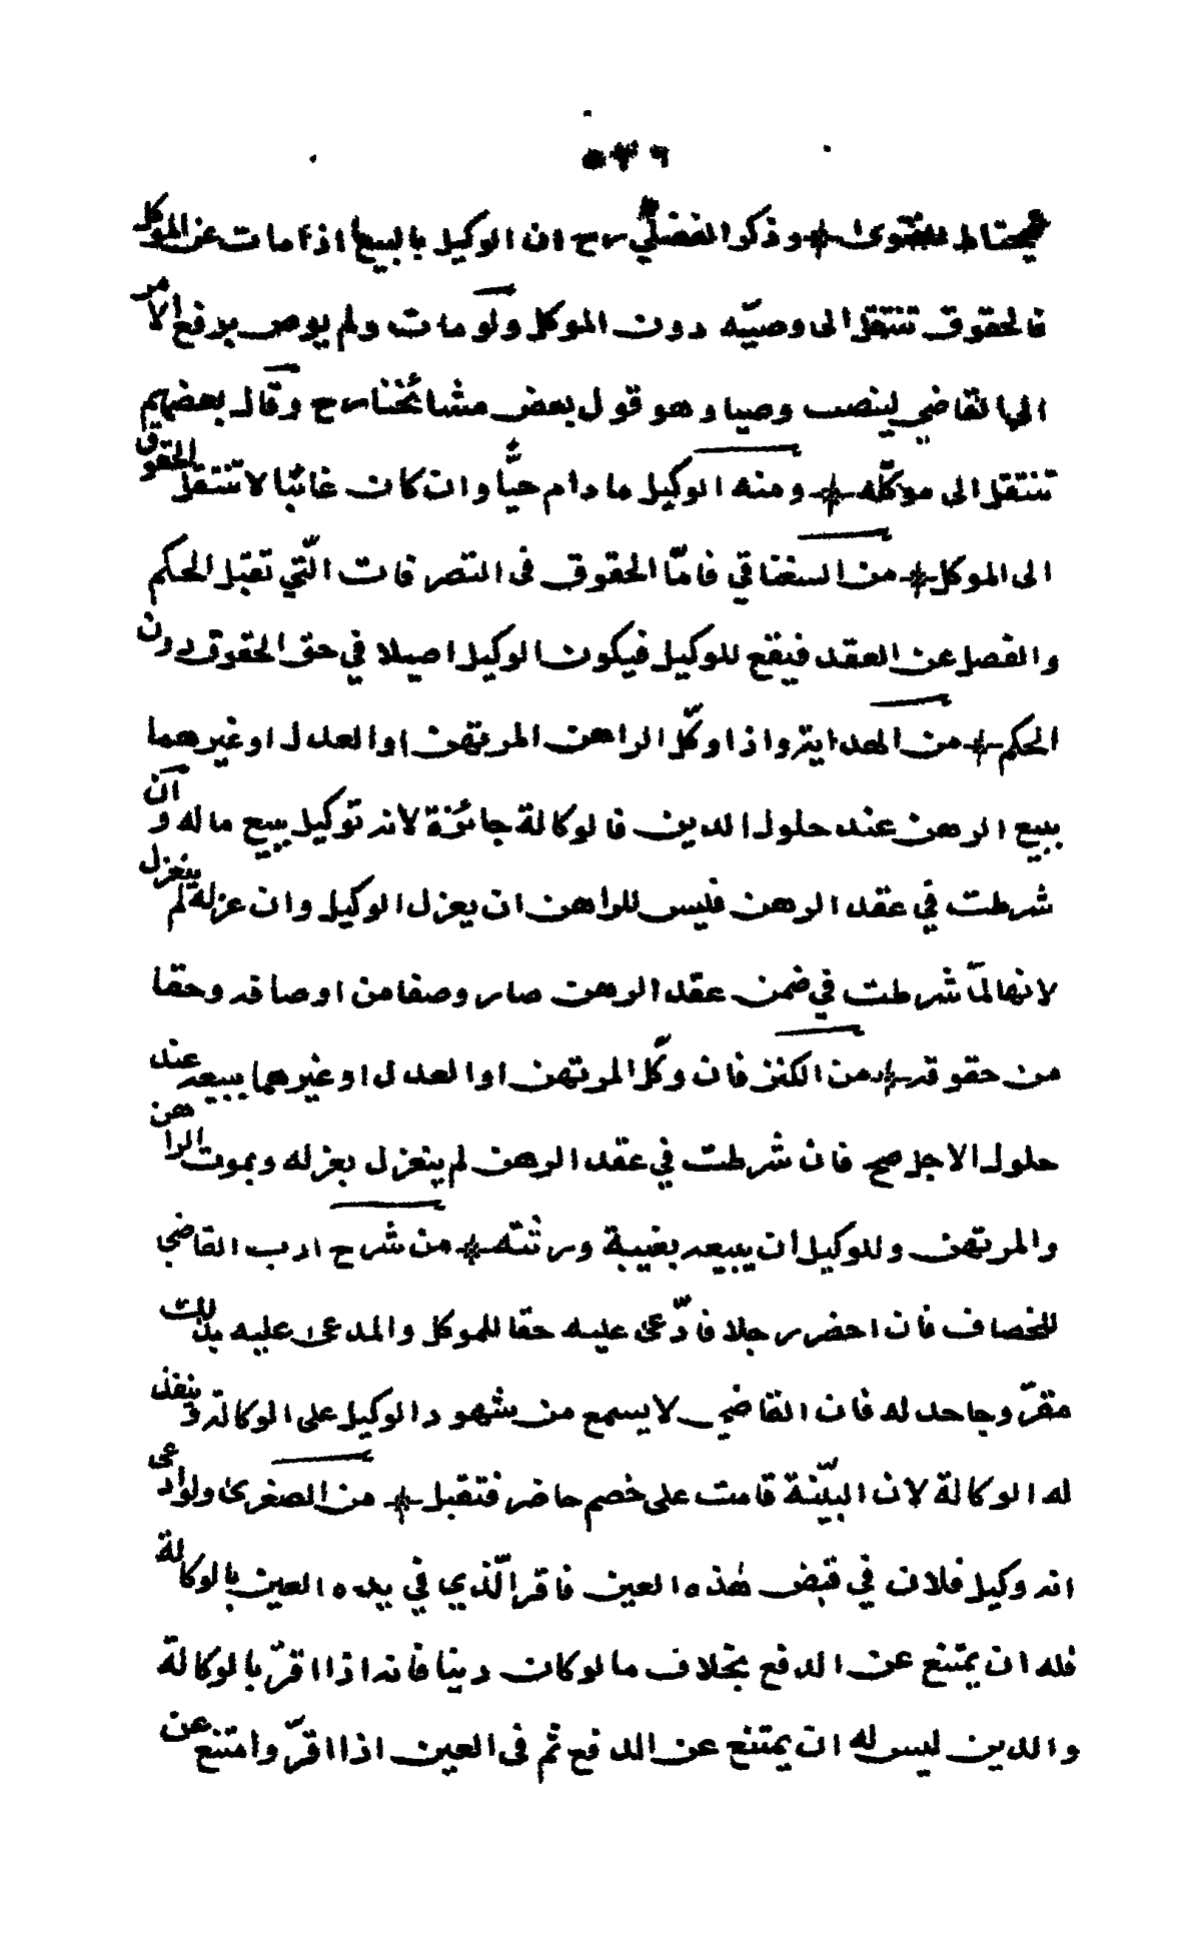 ٥٣٦
يحتاط للفتوى وذكر الفضلي رح ان الوكيل بالبيع اذا مات عن الموكل
فالحقوق تنتقل الى وصيّه دون الموكل ولو مات ولم يوص برفع الامر
الى القاضي لينصب وصيا وهو قول بعض مشائخنا رح وقال بعضهم
تنتقل الى موكّله ومنه الوكيل ما دام حيًّا وان كان غائبا لا تنتقل الحقوق
الى الموكل من السغناقي فامّا الحقوق فى التصرفات الّتي تقبل الحكم
والفصل عن العقد فيقع للوكيل فيكون الوكيل اصيلا في حق الحقوق دون
الحكم من الهداية واذا وكّل الراهن المرتهن او العدل او غيرهما
ببيع الرهن عند حلول الدين فالوكالة جائزة لانه توكيل ببيع ماله وان
شرطت في عقد الرهن فليس للراهن ان يعزل الوكيل وان عزله لم ينعزل
لانها لمّا شرطت في ضمن عقد الرهن صار وصفا من اوصافه وحقا
من حقوقه من الكنز فان وكّل المرتهن او العدل او غيرهما ببيعه عند
حلول الاجل صح فان شرطت في عقد الرهن لم ينعزل بعزله وبموت الراهن
والمرتهن وللوكيل ان يبيعه بغيبة ورثته من شرح ادب القاضي
للخصاف فان احضر رجلا فادّعى عليه حقا للموكل والمدعى عليه بذلك
مقرّ وجاحد له فان القاضي لا يسمع من شهود الوكيل على الوكالة وينفذ
له الوكالة لان البيّنة قامت على خصم حاضر فتقبل من الصغرى ولو ادعى
انه وكيل فلان في قبض هذه العين فاقر الّذي في يده العين بالوكالة
فله ان يمتنع عن الدفع بخلاف ما لو كان دينا فانه اذا اقرّ بالوكالة
والدين ليس له ان يمتنع عن الدفع ثم فى العين اذا اقرّ وامتنع عن